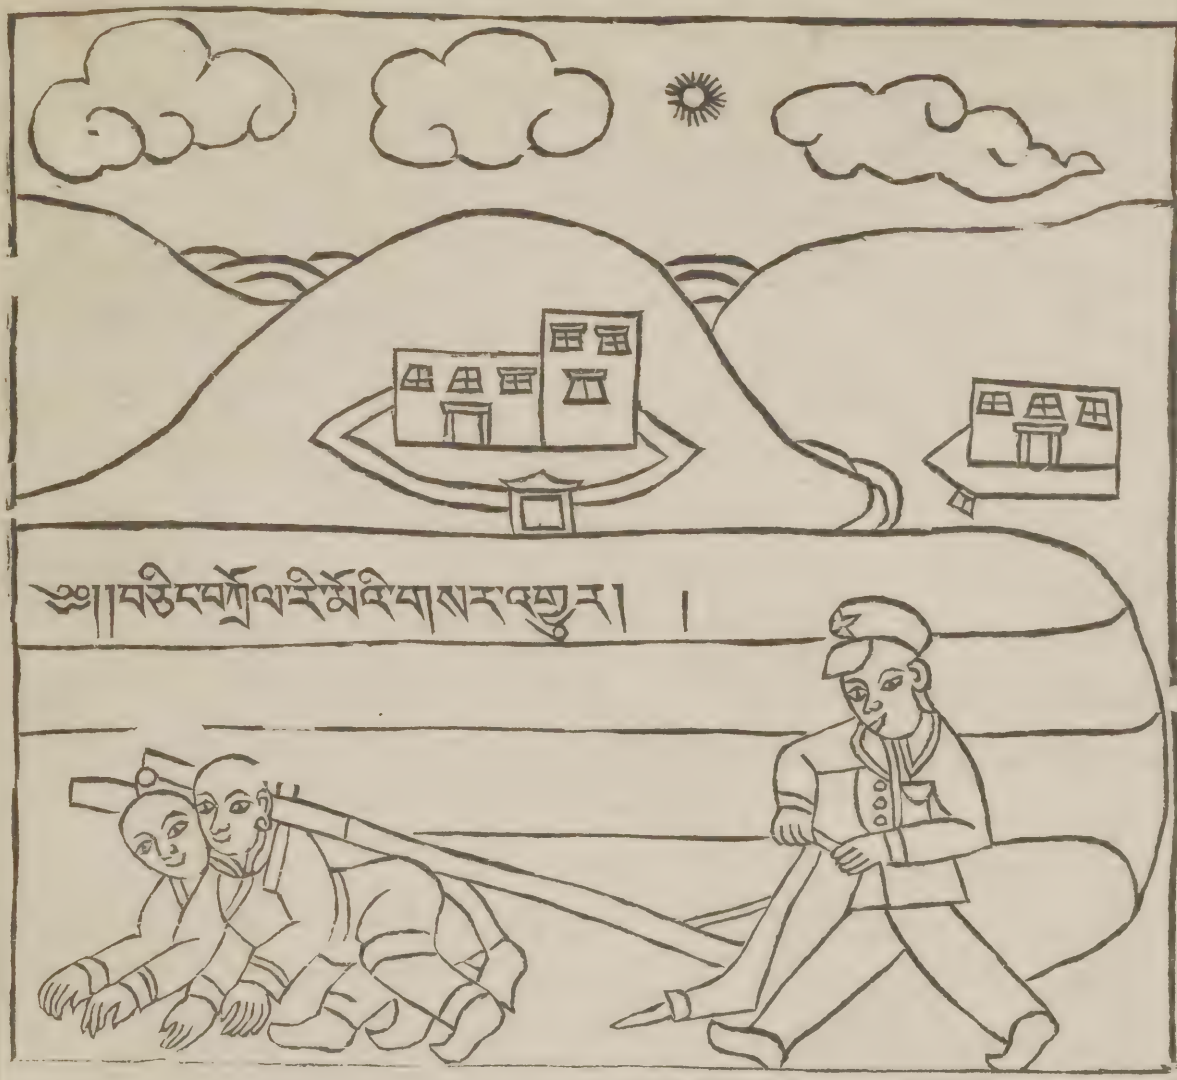 ༄༅།།བཅིང་བཀྲོལ་རི་མོའི་གསར་འགྱུར། །